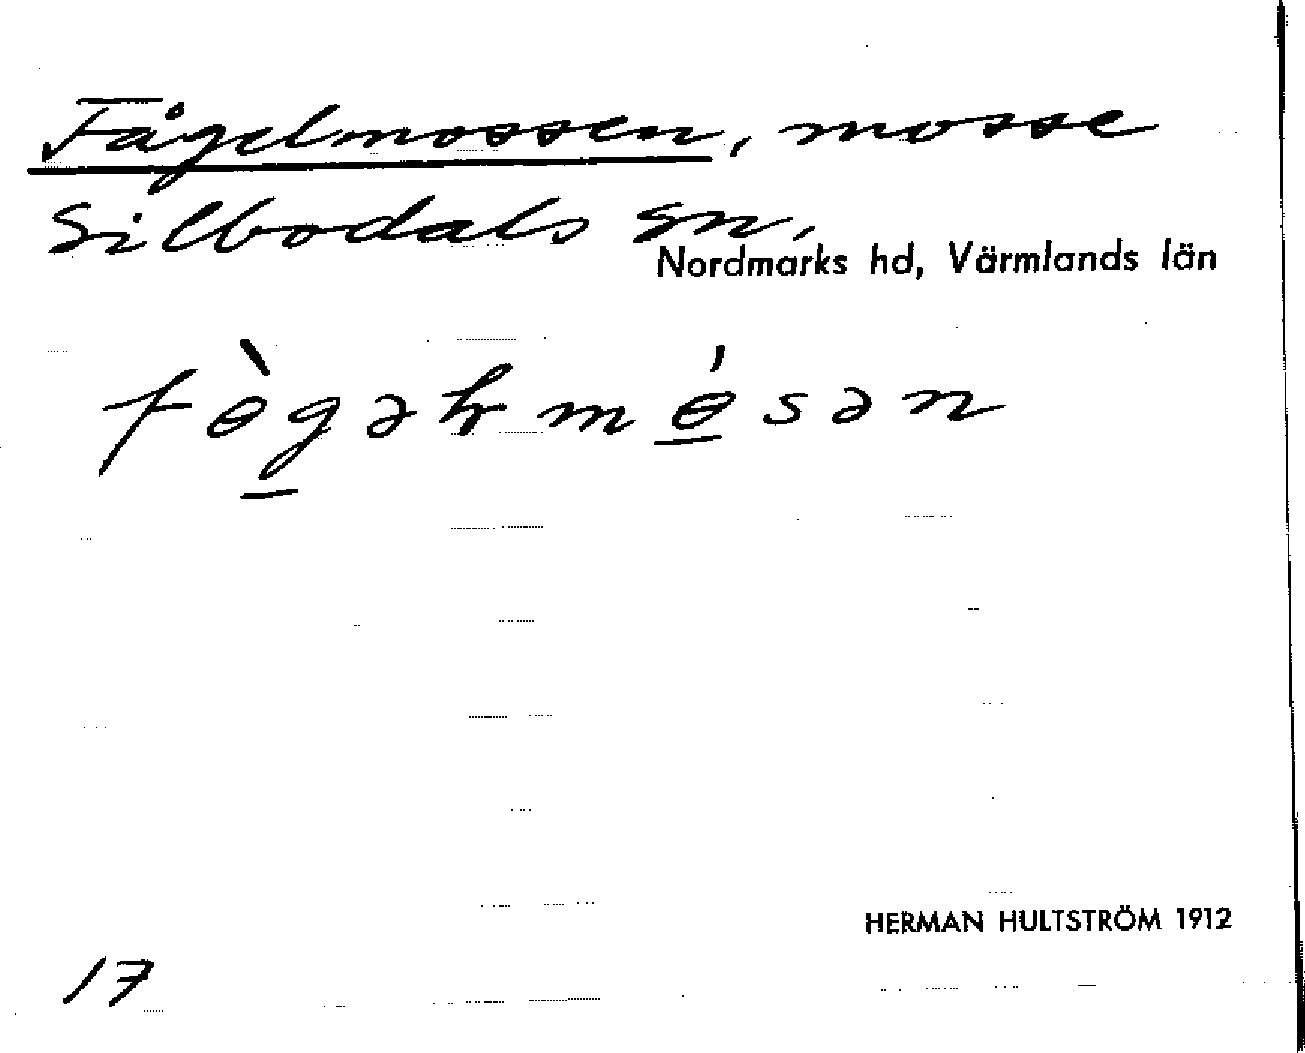 Fågelmossen, mosse
Silbodals sn,
Nordmarks hd, Värmlands län
fɵ̀gəɫmɵ́sən
HERMAN HULTSTRÖM 1912
17